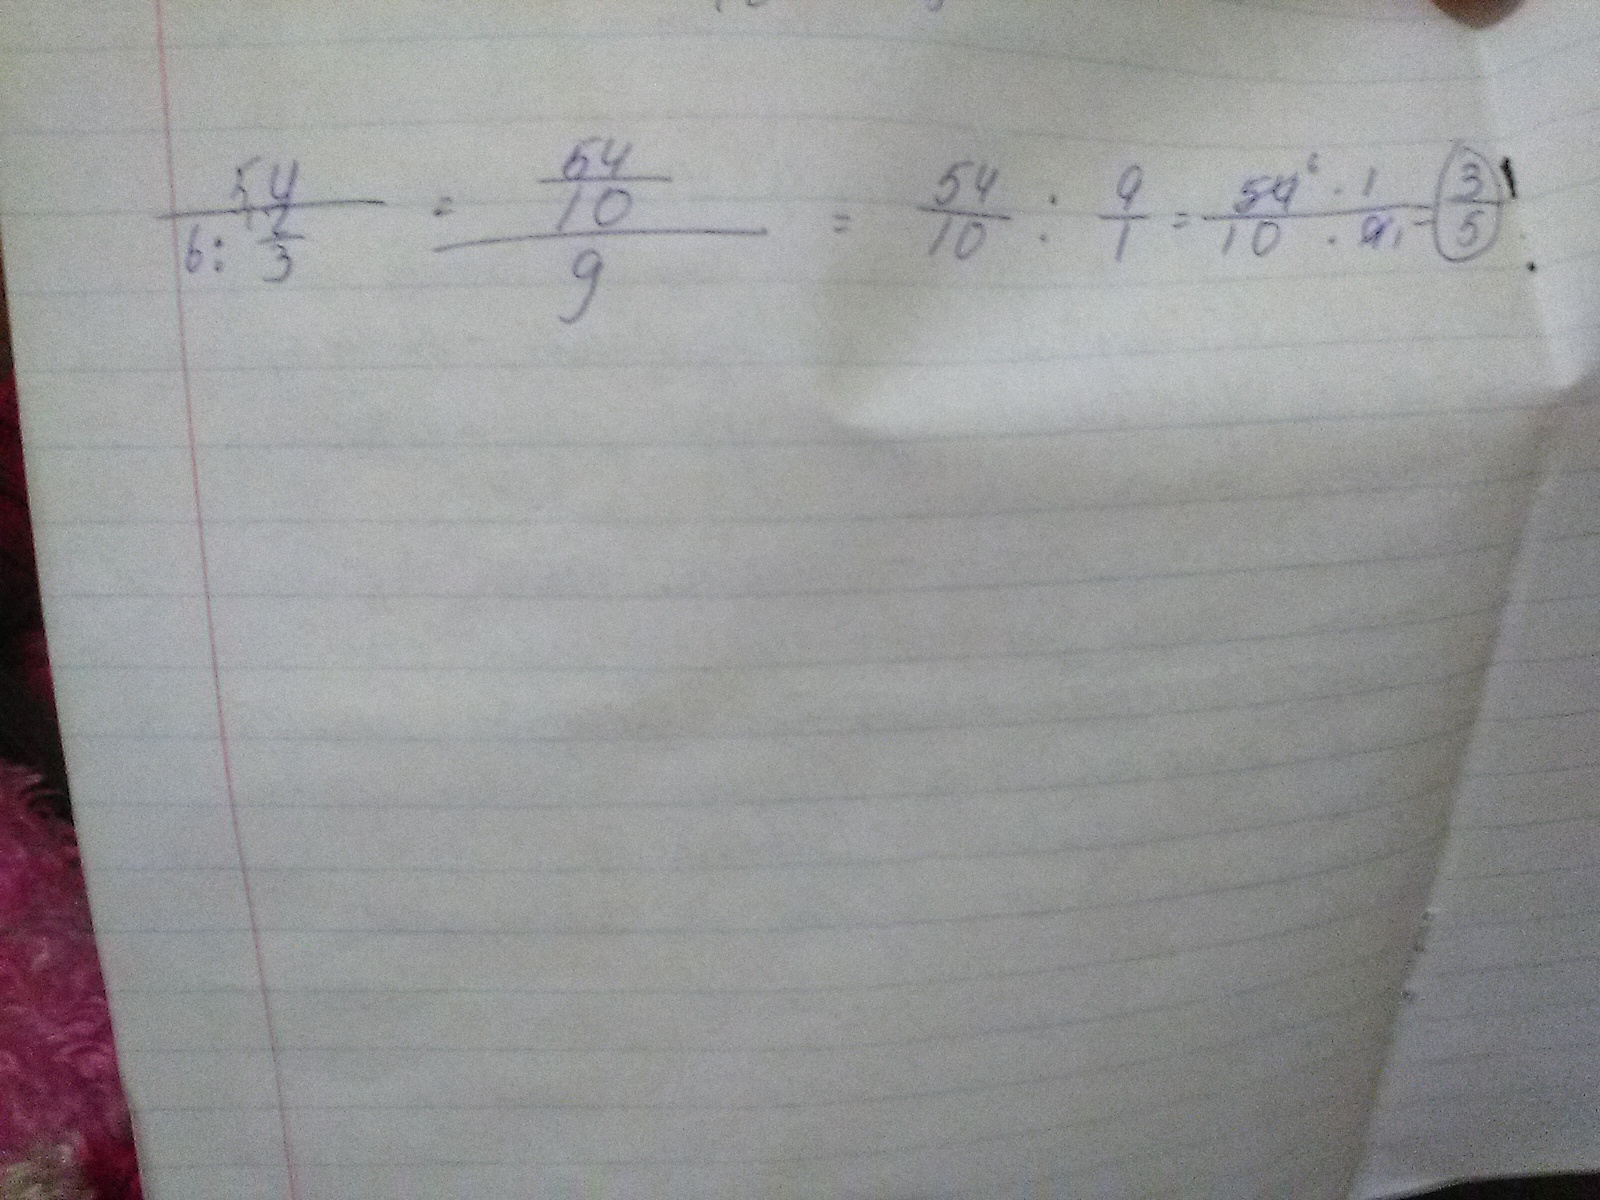 5,4 / (6 : 2/3) = (54/10) / 9 = 54/10 : 9/1 = 54⁶ · 1 / 10 · 9₁ = 3/5